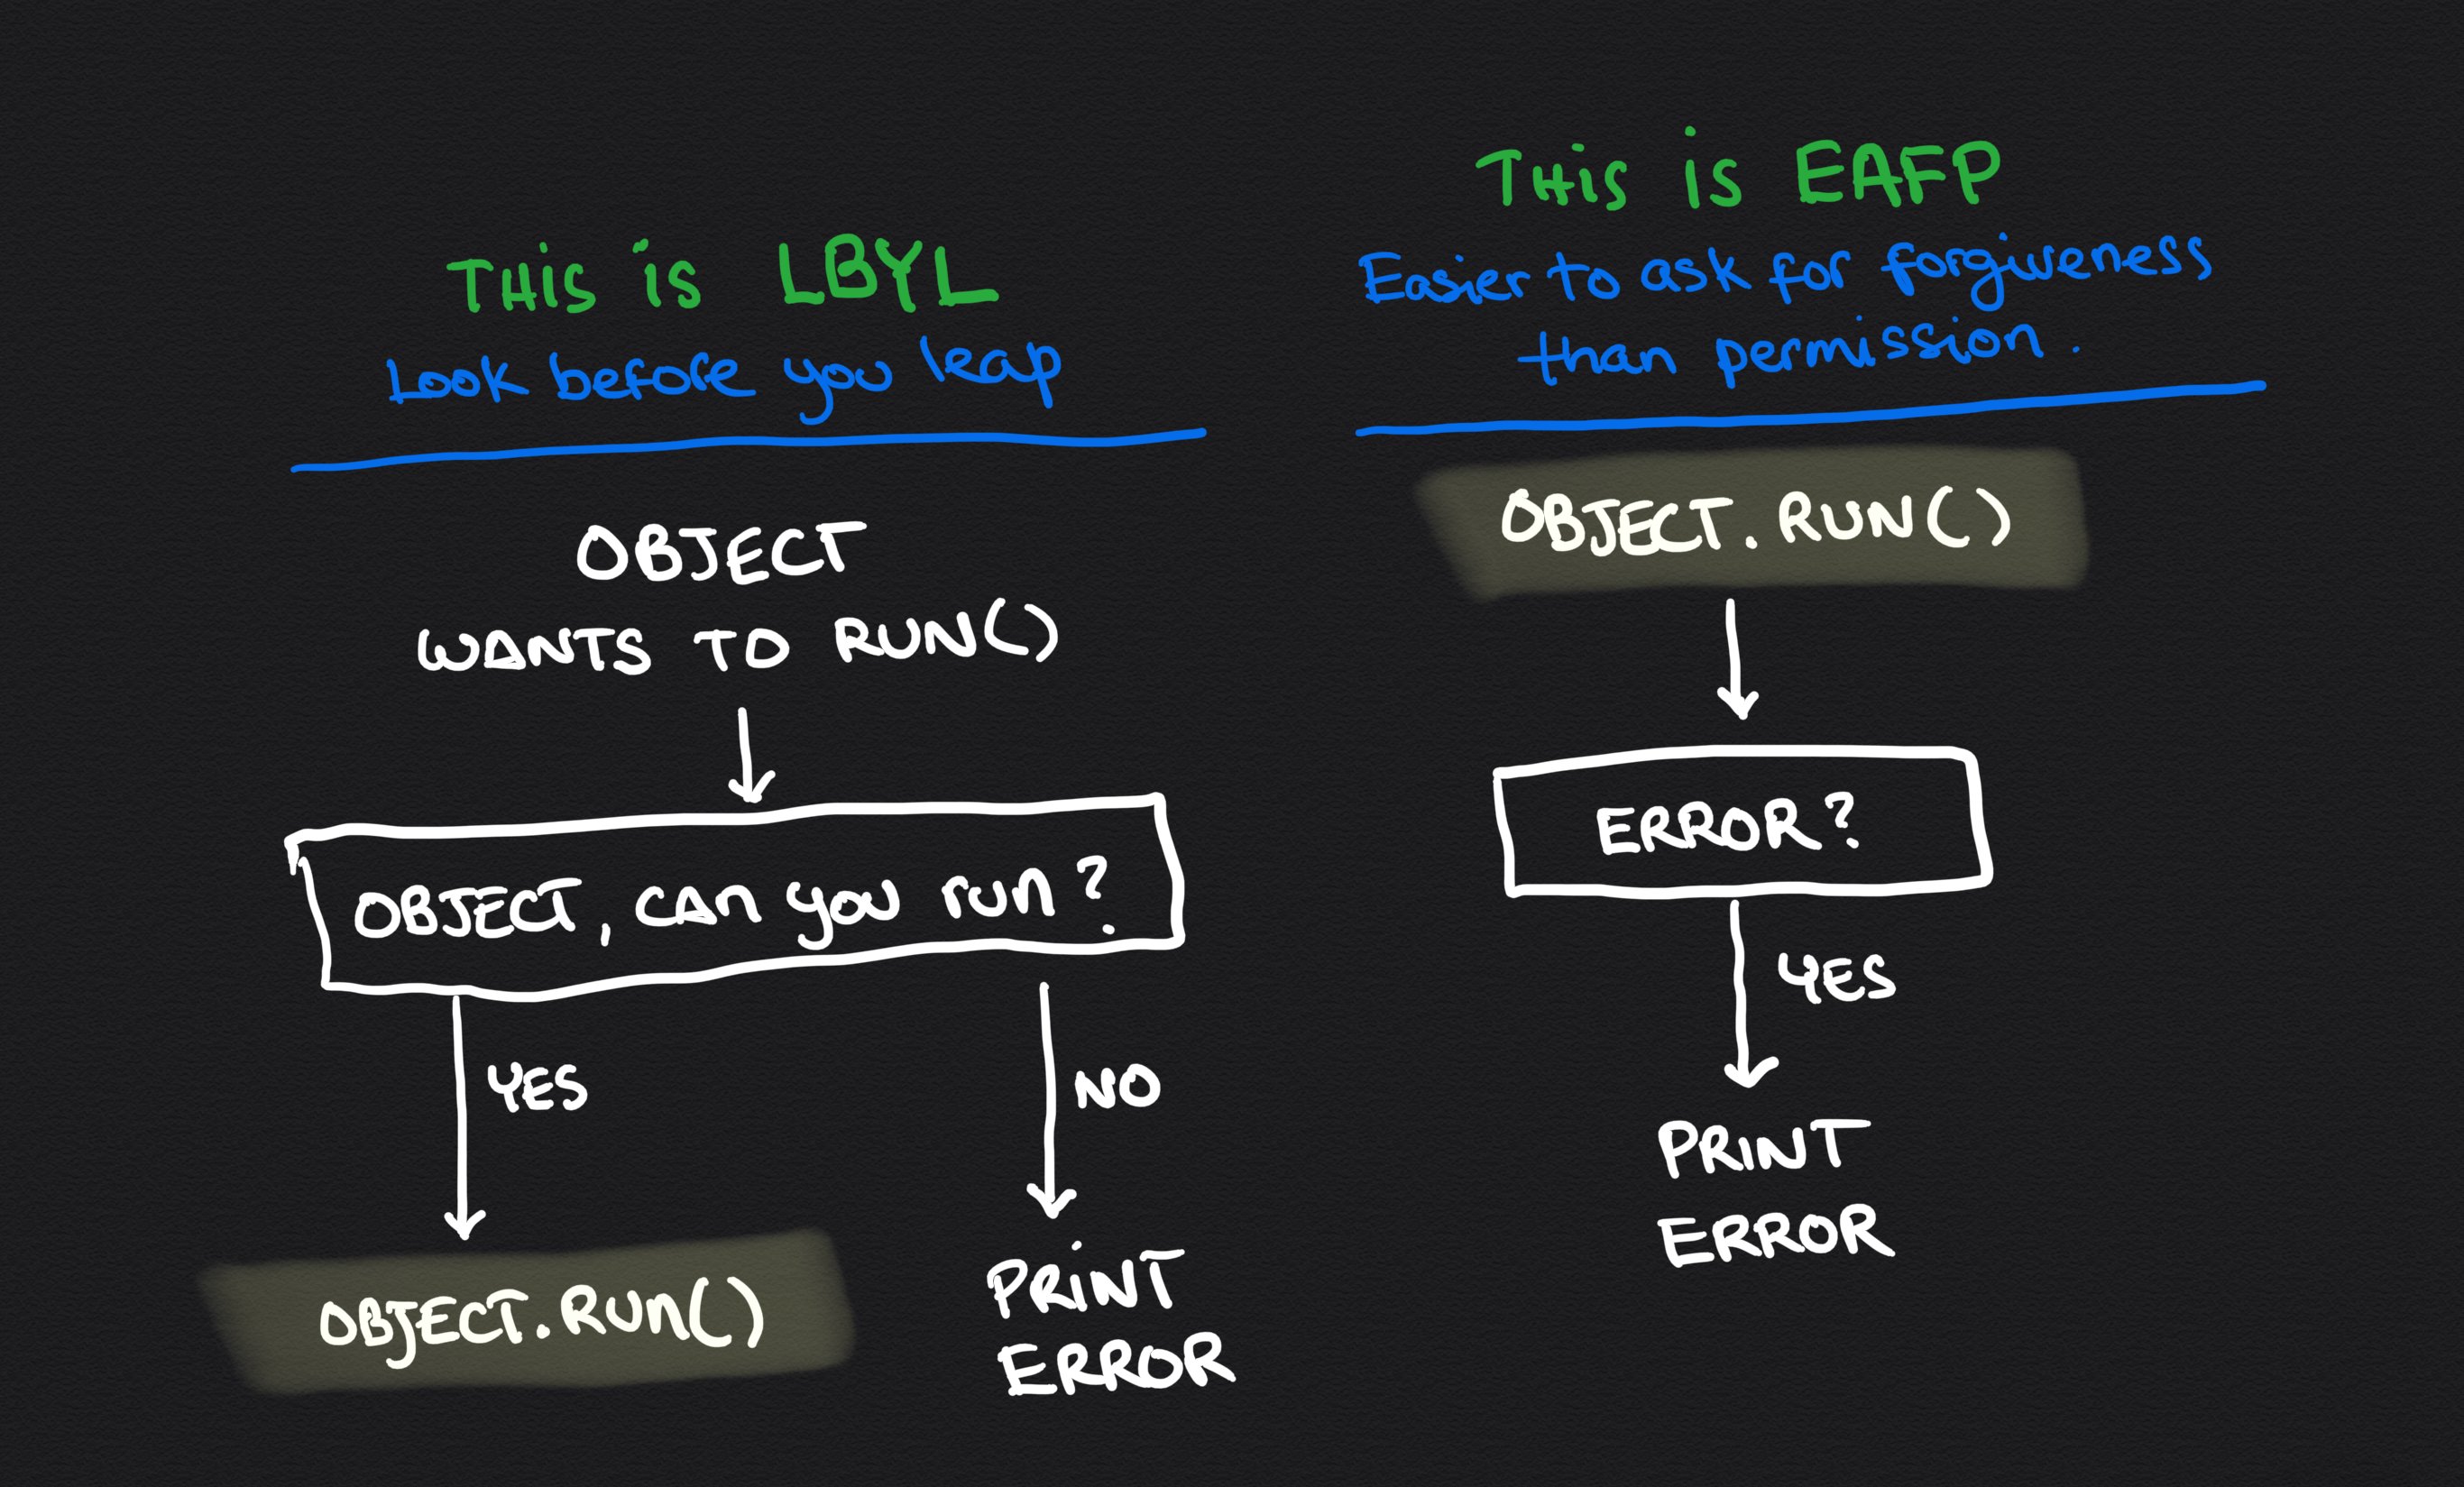 THis is LBYL
Look before you leap
OBJECT
WANTS TO RUN()
OBJECT, CAn you run?
YES
NO
OBJECT.RUn()
PRiNT
ERROR
THis is EAFP
Easier to ask for forgiveness
than permission.
OBJECT.RUN()
ERROR?
YES
PRINT
ERROR